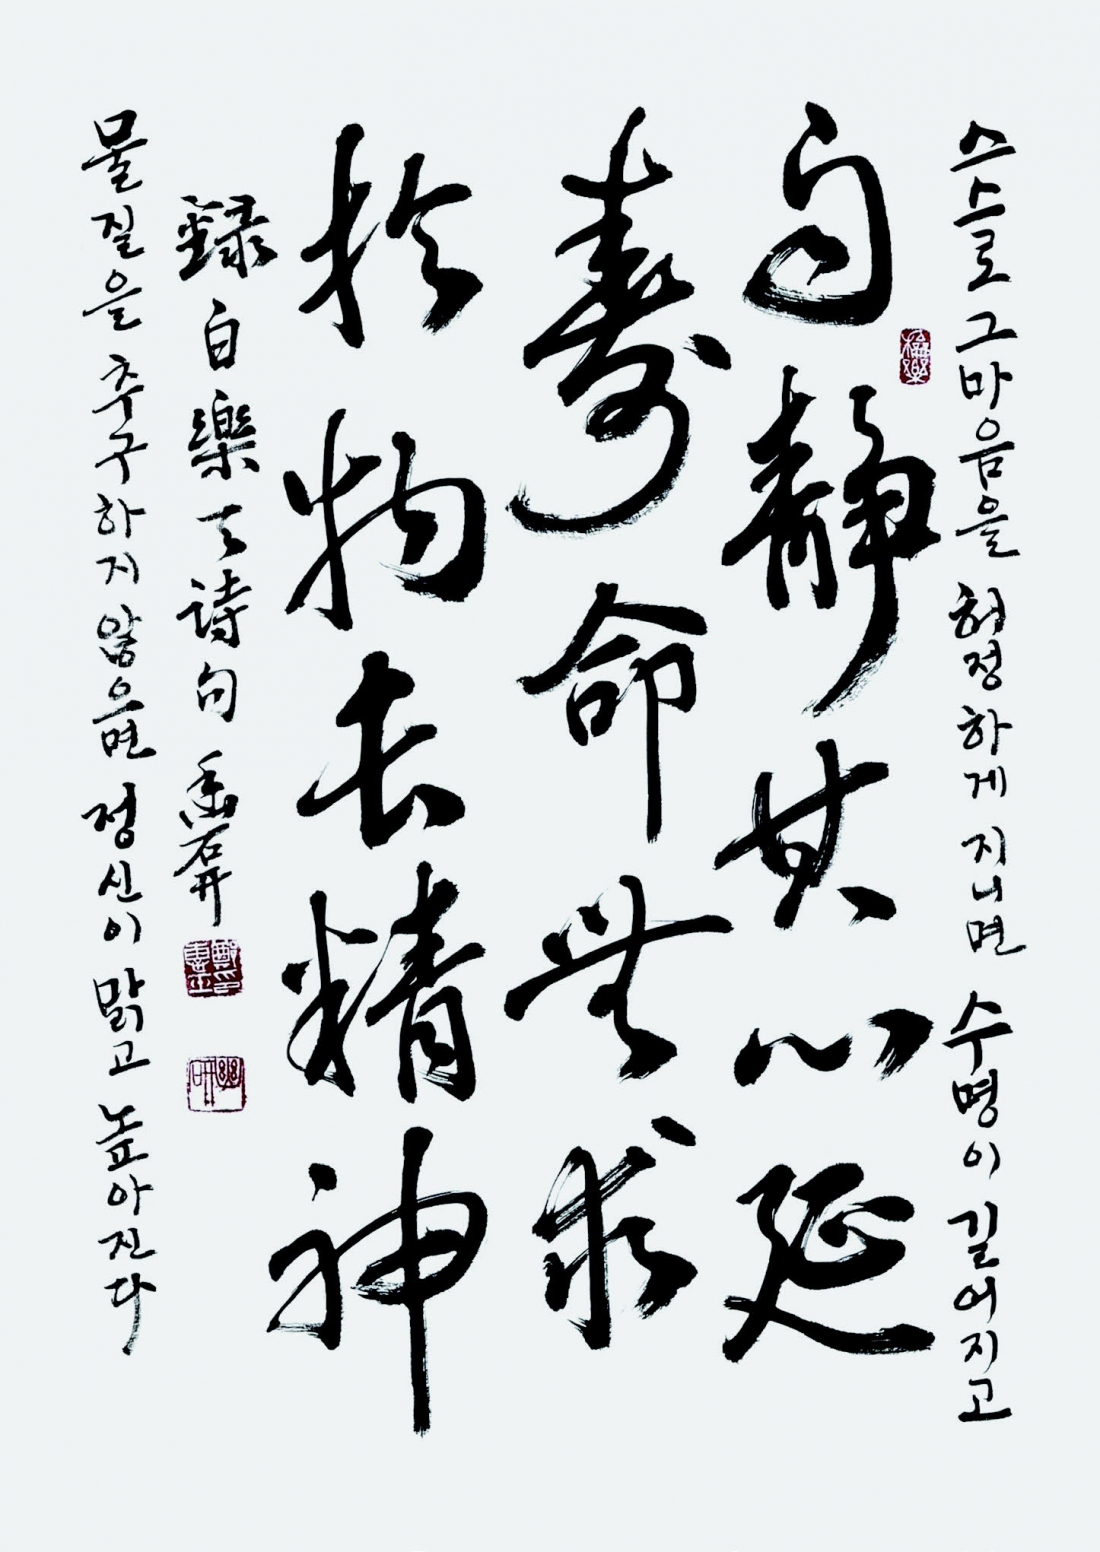 스스로 그 마음을 허정하게 지니면 수명이 길어지고
自靜其心延
壽命無求
於物長精神
錄白樂天詩句 幽硏
물질을 추구하지 않으면 정신이 맑고 높아진다